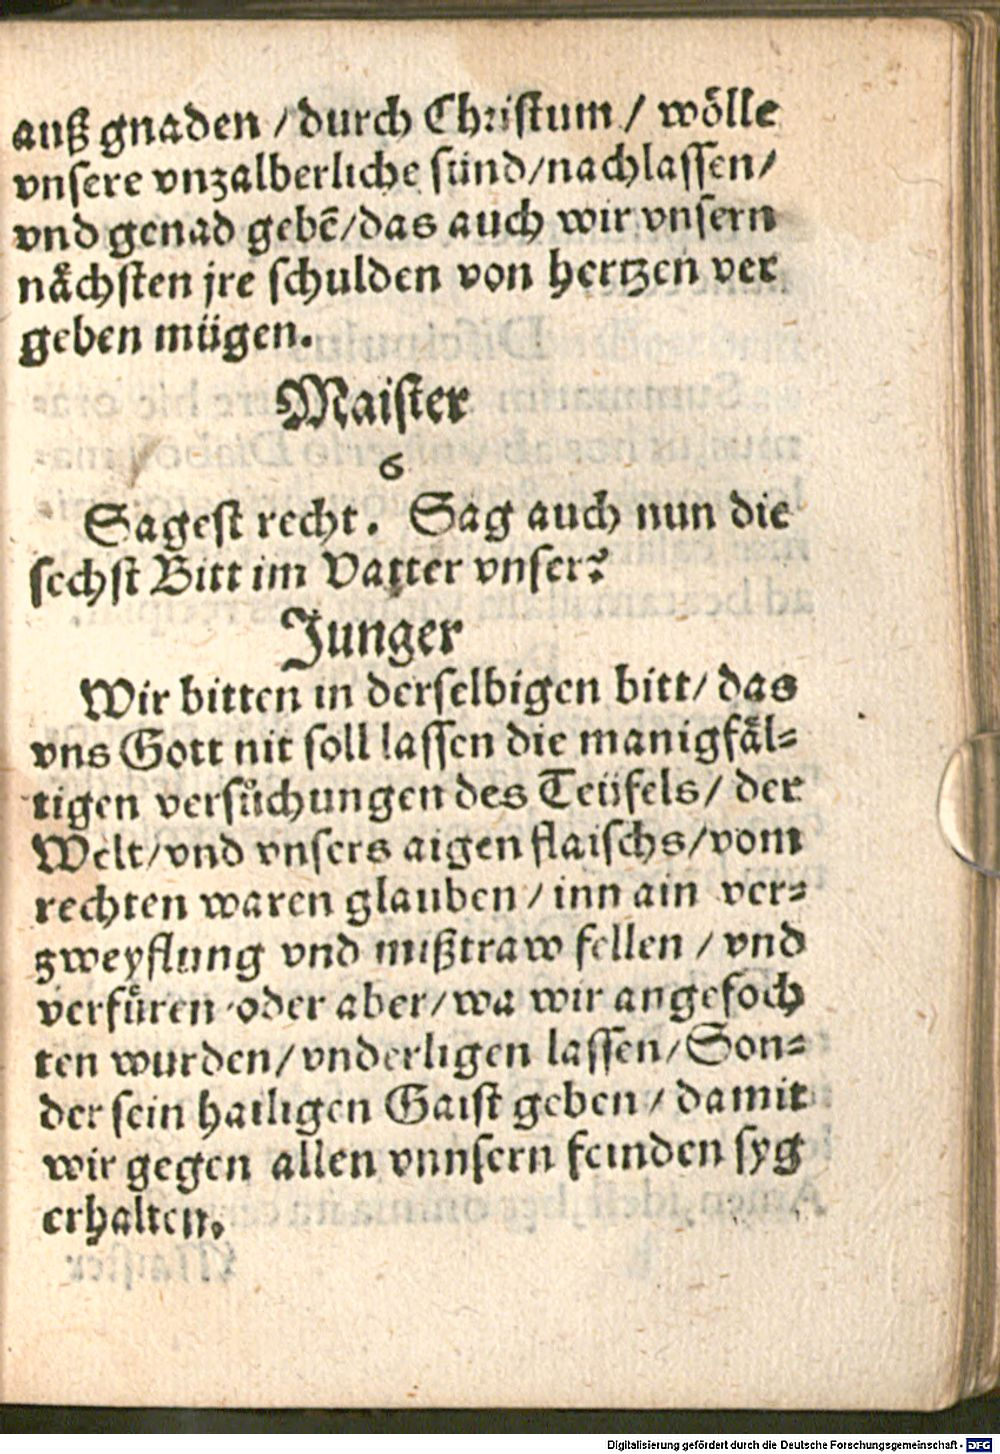 auß gnaden / durch Christum / woͤlle
vnsere vnzalberliche sünd/nachlassen/
vnd genad gebẽ/das auch wir vnsern
naͤchsten jre schulden von hertzen ver
geben mügen.
Maister
6
Sagest recht. Sag auch nun die
sechst Bitt im Vatter vnser?
Junger
Wir bitten in derselbigen bitt/ das
vns Gott nit soll lassen die manigfaͤl⸗
tigen versuͦchungen des Teüfels/ der
Welt/vnd vnsers aigen flaischs/vom
rechten waren glauben / inn ain ver⸗
zweyflung vnd mißtraw fellen / vnd
verfuͤren oder aber/wa wir angefoch
ten wurden/vnderligen lassen/Son⸗
der sein hailigen Gaist geben / damit
wir gegen allen vnnsern feinden syg
erhalten.
Digitalisierung gefördert durch die Deutsche Forschungsgemeinschaft - DFG